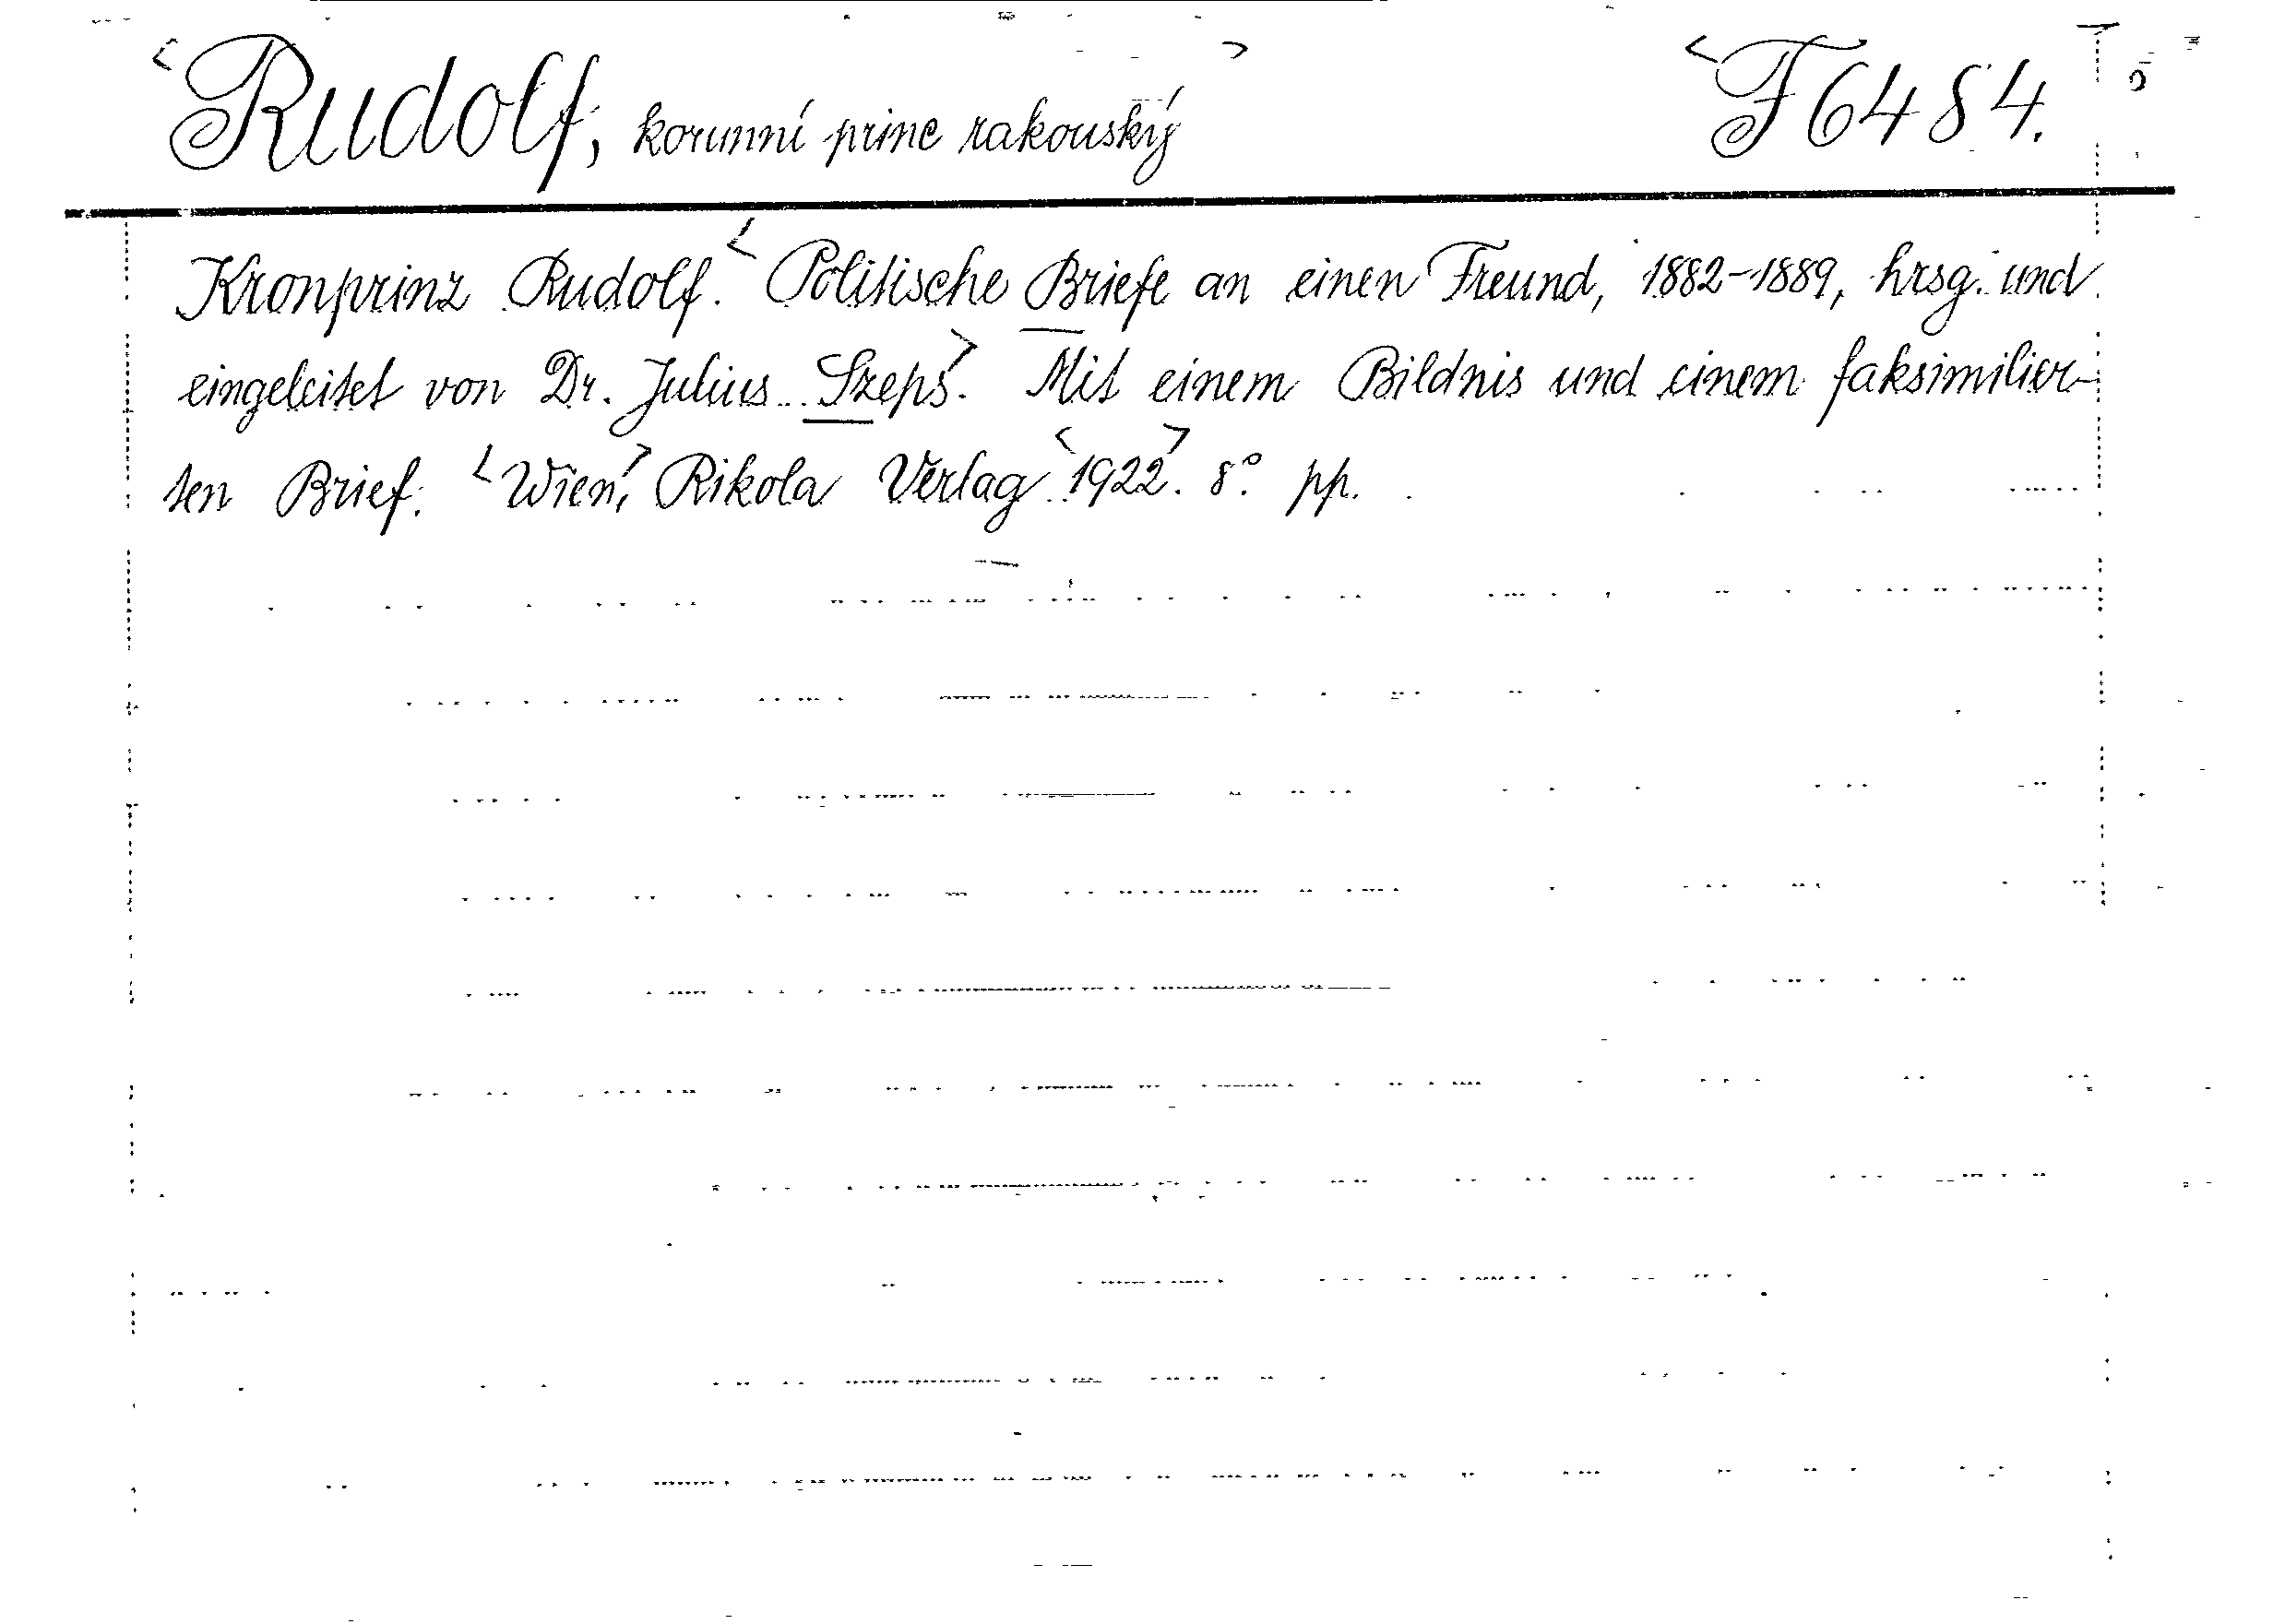 Rudolf, korunní princ rakouský F 6484.
Kronprinz Rudolf. Politische Briefe an einen Freund, 1882-1889, hrsg. und
eingeleitet von Dr. Julius Szeps. Mit einem Bildnis und einem faksimilier-
ten Brief. Wien, Rikola Verlag 1922. 8° pp.